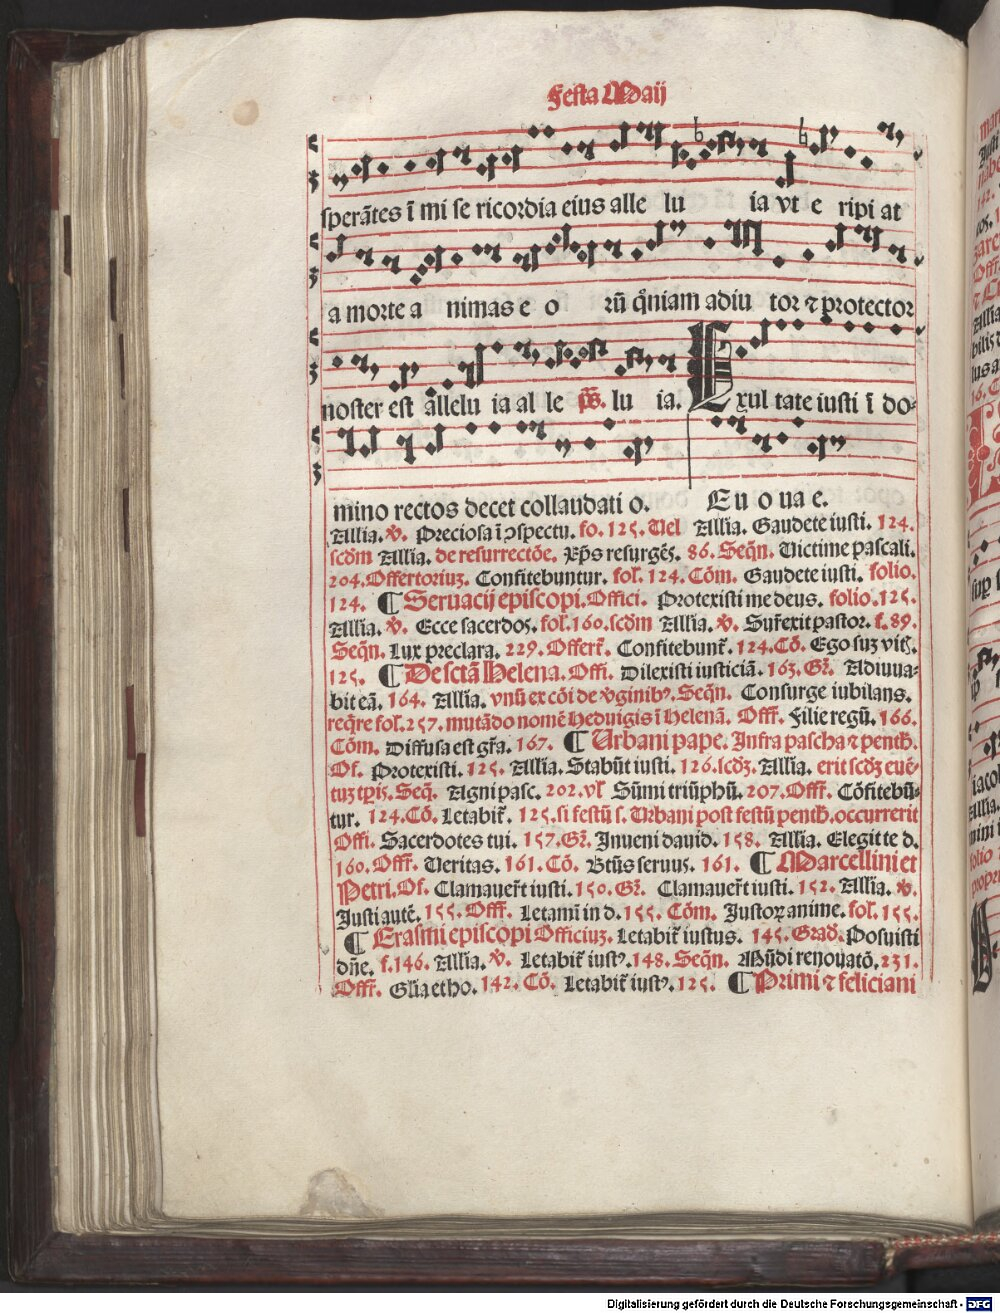 Festa Maij
sperātes ī mi se ricordia eius alle lu ia vt e ripi at
a morte a nimas e o rū qm̄niam adiu tor ⁊ protector
noster est allelu ia al le p̄s. lu ia. Exul tate iusti ī do-
mino rectos decet collaudati o. Eu o ua e.
Allia. v̄. Preciosa ī ɔspectu. fo. 125. Vel Allia. Gaudete iusti. 124.
scdm̄ Allia. de resurrectōe. Xp̄s resurgēs. 86. Seqn̄. Victime pascali.
204. Offertoriuʒ. Confitebuntur. fol. 124. Cōm. Gaudete iusti. folio.
124. ¶ Seruacij episcopi. Offici. Protexisti me deus. folio. 125.
Allia. v̄. Ecce sacerdos. fol. 160. scdm̄ Allia. v̄. Surrexit pastor. f. 89.
Seqn̄. Lux preclara. 229. Offert̄. Confitebunt̄. 124. Cō. Ego suʒ vitꝭ.
125. ¶ De sctā Helena. Offi. Dilexisti iusticiā. 163. Gr̄. Adiuua-
bit eā. 164. Allia. vnū ex cōi de v̄ginibꝰ. Seqn̄. Consurge iubilans.
reqr̄e fol. 257. mutādo nomē Heduigis ī Helenā. Off̄. Filie regū. 166.
Cōm. Diffusa est gr̄a. 167. ¶ Urbani pape. Infra pascha ⁊ penth̄.
Of. Protexisti. 125. Allia. Stabūt iusti. 126. scdʒ. Allia. erit scdʒ euē-
tuʒ tꝑis. Seq̄. Agni pasc. 202. vl̄ Sūmi triūphū. 207. Off̄. Cōfitebū-
tur. 124. Cō. Letabit̄. 125. si festū s. Urbani post festū penth̄. occurrerit
Offi. Sacerdotes tui. 157. Gr̄. Inueni dauid. 158. Allia. Elegit te d.
160. Off̄. Veritas. 161. Cō. Btūs seruus. 161. ¶ Marcellini et
Petri. Of. Clamauer̄t iusti. 150. Gr̄. Clamauer̄t iusti. 152. Allia. v̄.
Iusti autē. 155. Off̄. Letamī in d. 155. Cōm. Iustoꝝ anime. fol. 155.
¶ Erasmi episcopi Officiuʒ. Letabit̄ iustus. 145. Grad̄. Posuisti
dn̄e. f. 146. Allia. v̄. Letabit̄ iustꝰ. 148. Seqn̄. Mūdi renouatō. 231.
Off̄. Glia et ho. 142. Cō. Letabit̄ iustꝰ. 125. ¶ Primi ⁊ feliciani
Digitalisierung gefördert durch die Deutsche Forschungsgemeinschaft - DFG